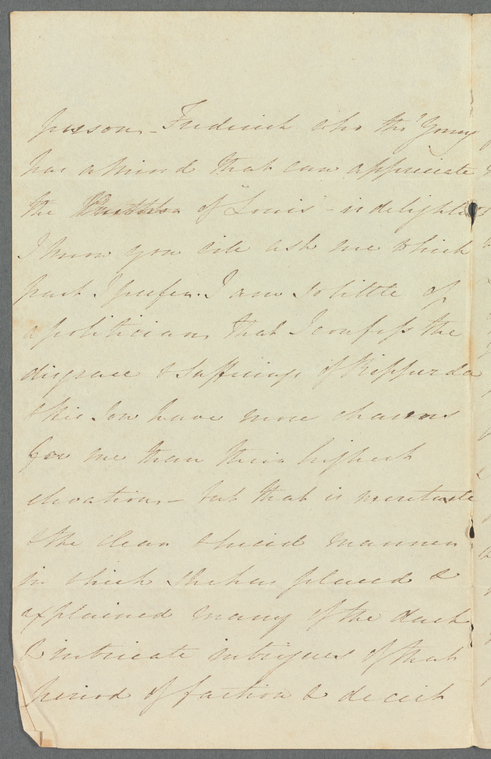 person - Frederick who tho' Young
has a mind that can appreciate
the of "Louis" - is delighted
I know you will ask me which
part I prefer. I am so little of
a politician, that I confess the
disgrace & sufferings of Ripperda
& his Son have more charms
for me than their highest
elevation - but that is
& the clear & lucid manner
in which she has placed &
explained many of the dark
& intricate intrigues of that
period of faction & deceit